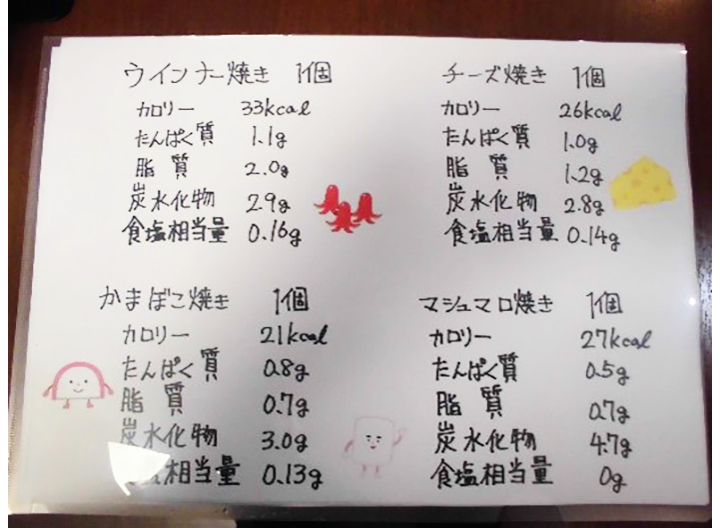 ウインナー焼き 1個
カロリー 33kcal
たんぱく質 1.1g
脂質 2.0g
炭水化物 2.9g
食塩相当量 0.16g
チーズ焼き 1個
カロリー 26kcal
たんぱく質 1.0g
脂質 1.2g
炭水化物 2.8g
食塩相当量 0.14g
かまぼこ焼き 1個
カロリー 21kcal
たんぱく質 0.8g
脂質 0.7g
炭水化物 3.0g
相当量 0.13g
マシュマロ焼き 1個
カロリー 27kcal
たんぱく質 0.5g
脂質 0.7g
炭水化物 4.7g
食塩相当量 0g